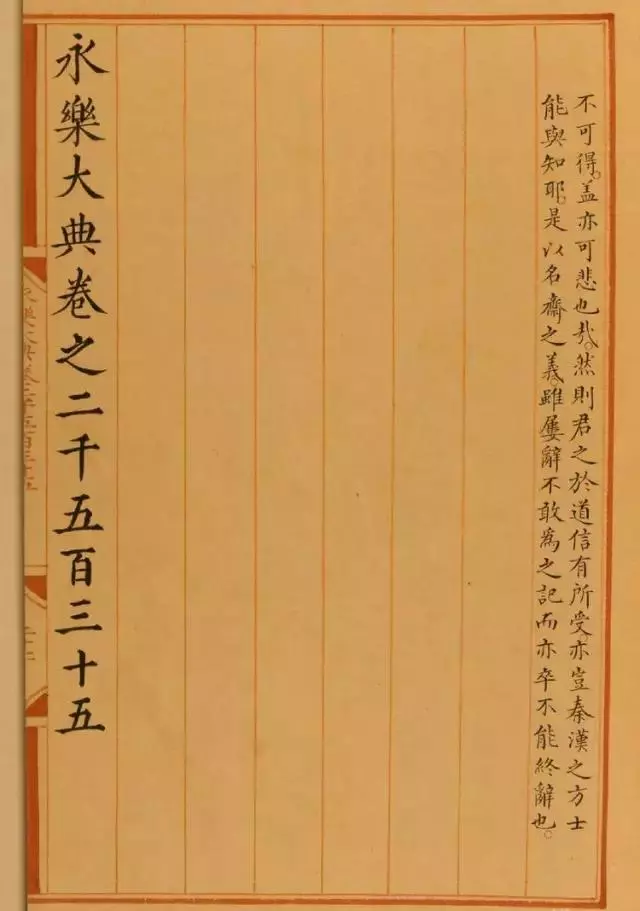 不可得。盖亦可悲也哉。然則君之於道信有所受。亦豈秦漢之方士
能與知耶。是以名齋之義。雖屡辭不敢爲之記而亦卒不能終辭也。
永樂大典卷之二千五百三十五
永樂大典卷二千五百三十五